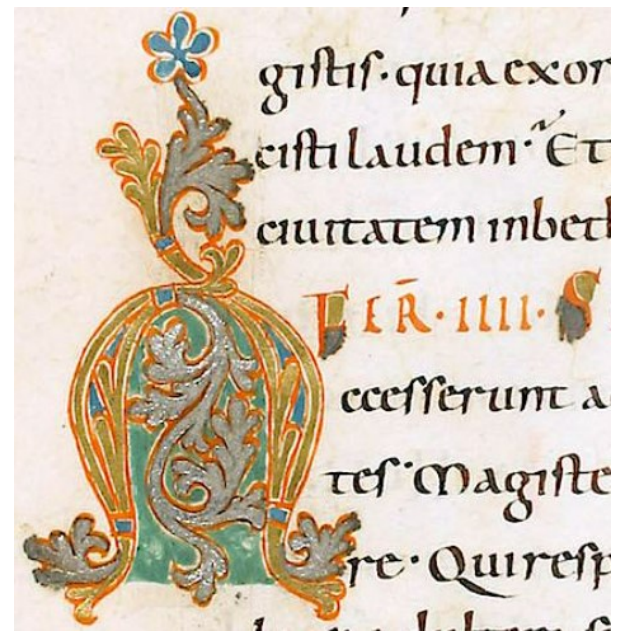 gistis · quia exor
cisti laudem · Et
ciuitatem in beth
FER̄ · IIII · S
Accesserunt a
tes · Magiste
re · Qui resp